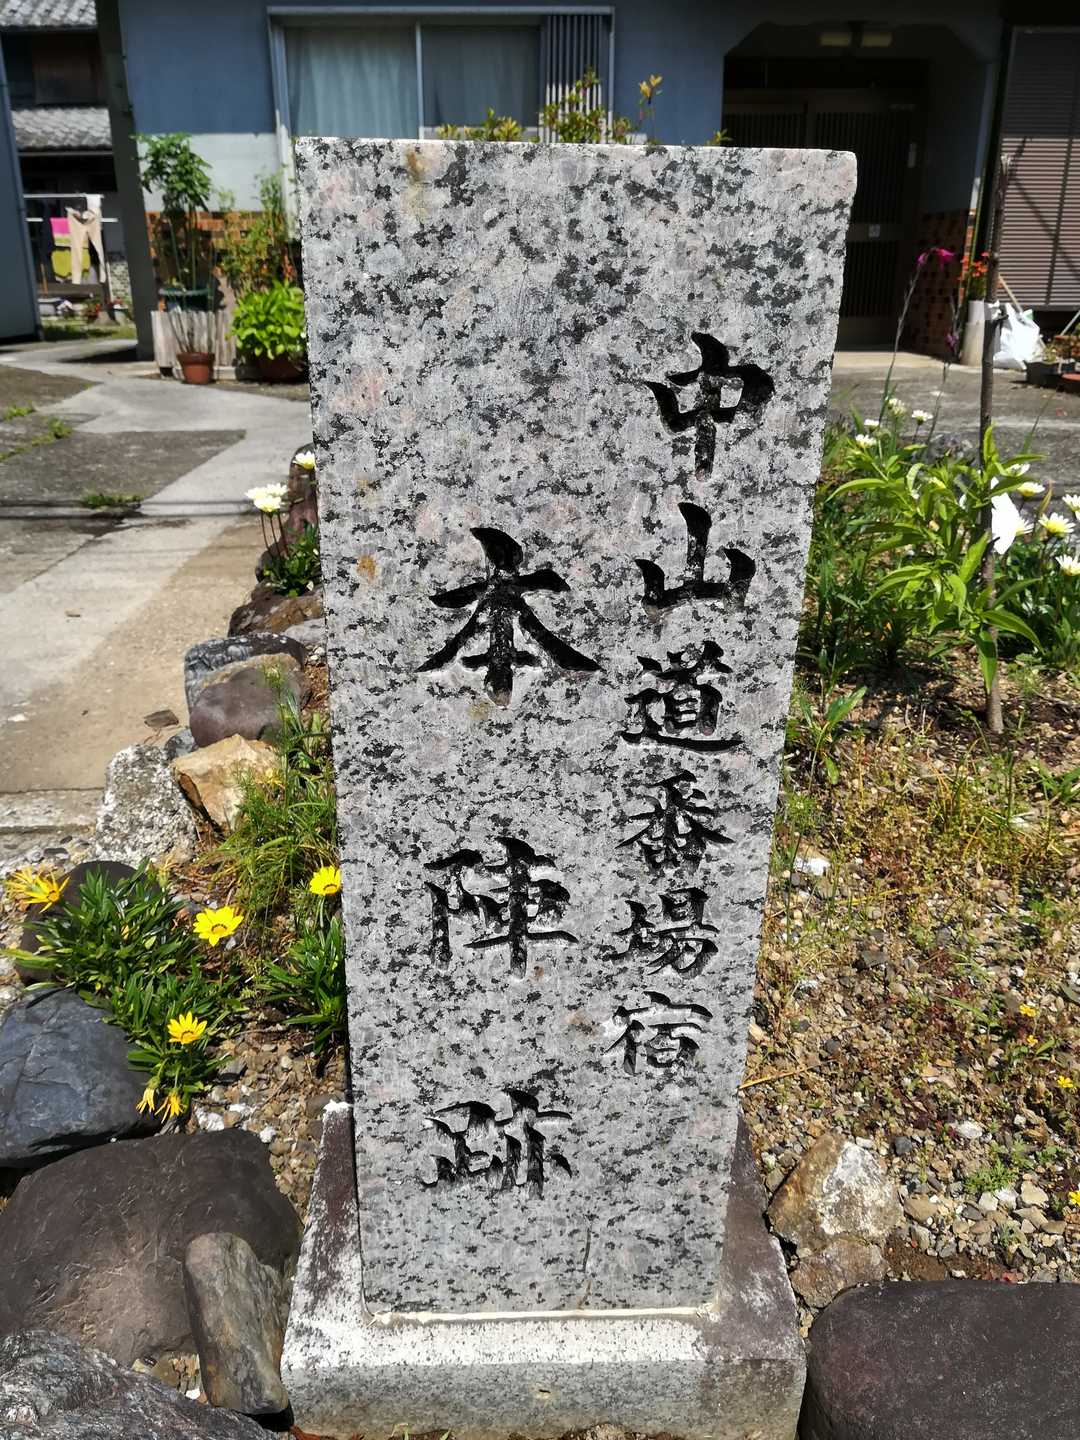 中山道番場宿
本陣跡